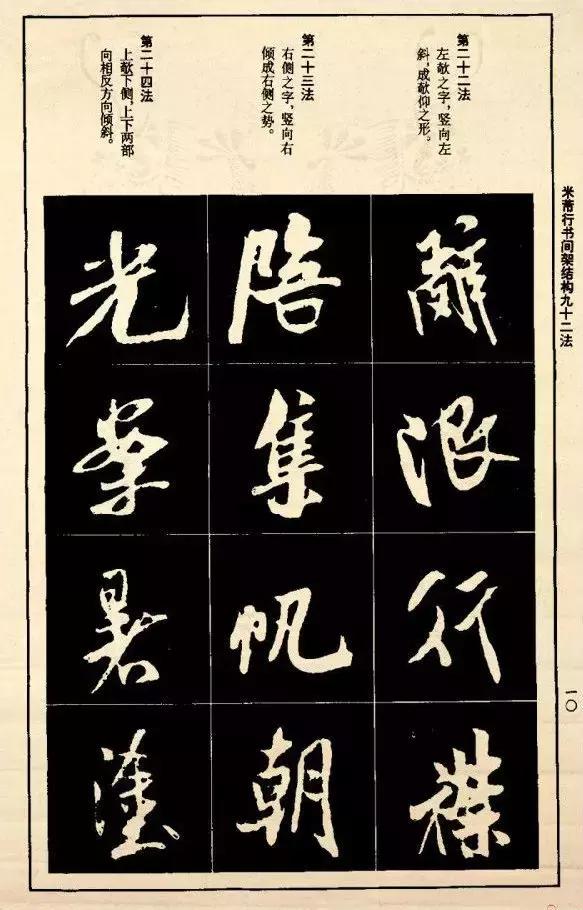 米芾行书间架结构九十二法
一〇
第二十二法
左欹之字,竖向左
斜,成欹仰之形。
第二十三法
右侧之字,竖向右
倾成右侧之势。
第二十四法
上欹下侧,上下两部
向相反方向倾斜。
辭浪行
陪集帆朝
光暑塗